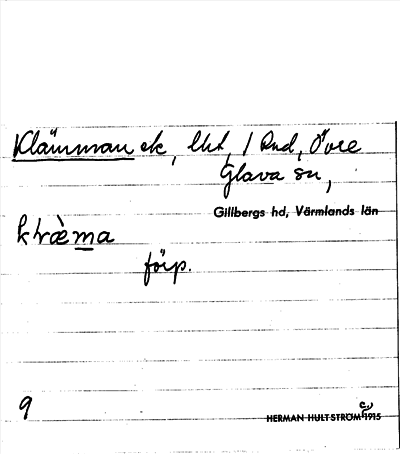 Klämman ek, lht, 1 Rud, Övre
Glava sn,
Gillbergs hd, Värmlands län
förp.
9
HERMAN HULTSTRÖM 1915